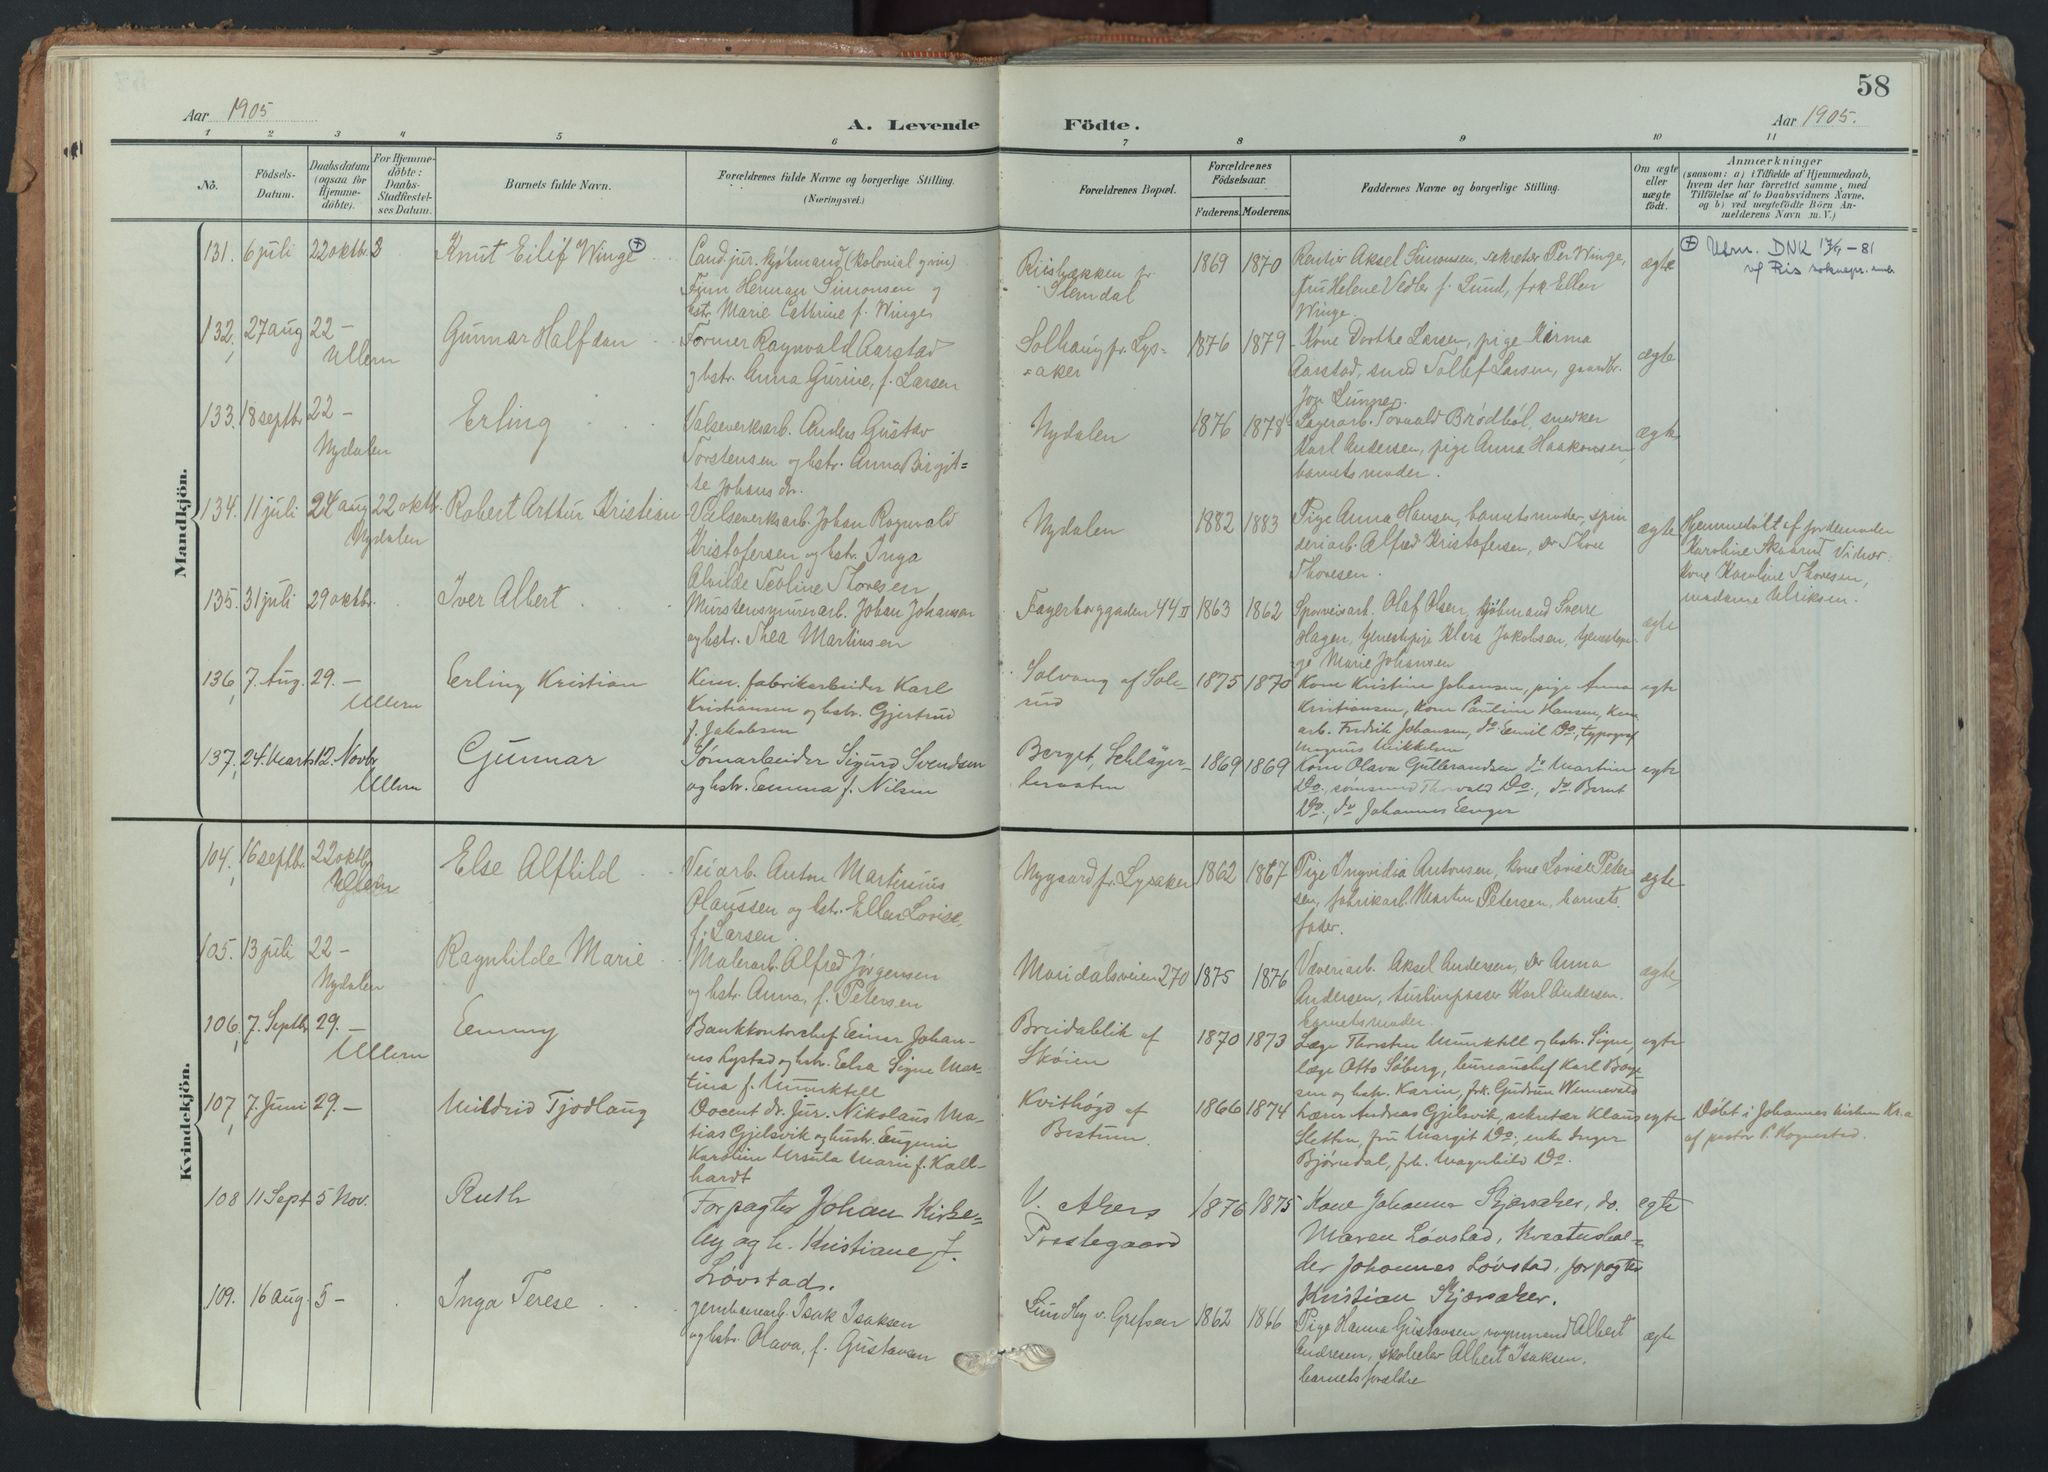 58
Aar 1905
A. Levende Fødte.
Aar 1905.
1 2 3 4 5 6 7 8 9 10 11
No.
Födsels-
Datum.
Daabsdatum
(ogsaa for
Hjemme-
döbte).
For Hjemme-
döbte:
Daabs-
Stadfæstel-
ses Datum.
Barnets fulde Navn.
Forældrenes fulde Navne og borgerlige Stilling.
(Næringsvei.)
Forældrenes Bopæl.
Forældrenes
Födselsaar.
Faderens. Moderens.
Faddernes Navne og borgerlige Stilling.
Om ægte
eller
uægte
født.
Anmærkninger
(saasom: a) i Tilfælde af Hjemmedaab,
hvem der har forrettet samme, med
Tilföielse af to Daabsvidners Navne,
og b) ved uægtefödte Börn An-
melderens Navn m. V.)
Mandkjön.
131. 6 juli 22 oktbr. Knut Eilif Winge
Cand. jur. kjøbmand (kolonial g vin)
Finn Herman Simonsen og
hstr. Marie Cathrine f. Winge
Riisbækken pr
Slemdal
1869 1870
Rentier Aksel Simonsen, sekretær Per Winge,
fru Helene Vedler f. Lund, frk Ellen
Winge.
ægte
DNK 81
v/ Ris
132, 27 aug 22 –
Ullern
Gunnar Halfdan
Former Ragnvald Aarstad
og hstr. Anna Gurine, f. Larsen
Solhaug pr. Lys-
aker
1876 1879
Kone Dorthe Larsen, pige Karma
Aarstad, smed Tollef Larsen, gaardbr.
Jon Lunner.
ægte
133. 18 septbr 22 –
Nydalen
Erling
Valseverksarb. Anders Gustav
Torstensen og hstr. Anna Birgit-
te Johans dr.
Nydalen
1876 1878
Lagerarb. Torvald Brødbøl, snedker
Karl Andersen, pige Anna Haakonsen,
barnets moder.
ægte
134. 11 juli 24 aug 22 oktbr.
Nydalen
Robert Arthur Kristian
Valseverksarb. Johan Ragnvald
Kristofersen og hstr. Inga
Alvilde Teoline Thoresen
Nydalen
1882 1883
Pige Anna Hansen, barnets moder, spin
deriarb. Alfred Kristofersen, Do Thore
Thoresen.
ægte
Hjemmedøbt af jordemoder
Karoline Skaarud Vidner:
Kone Karoline Thoresen,
madame Ulriksen.
135. 31 juli 29 oktbr.
Iver Albert
Murstensmurerarb. Johan Johansen
og hstr. Thea Martinsen
Fagerborggaden 44 II
1863 1862
Sporveisarb. Olaf Olsen, kjøbmand Sverre
Hagen, tjenestepige Klara Jakobsen, tjenestepi-
ge Marie Johansen
ægte
136, 7. Aug. 29. –
Ullern
Erling Kristian
Kem. fabrikarbeider Karl
Kristiansen og hstr. Gjertrud
f. Jakobsen
Solvang af Sole-
rud
1875 1870
Kone Kristine Johansen, pige Anna
Kristiansen, Kone Pauline Hansen, Kem.
arb. Fredrik Johansen, do Emil Do, typograf
Magnus Mikkelsen
egte
137, 24. Marts 12. Novbr
Ullern
Gunnar
Sømarbeider Sigurd Svendsen
og hstr. Emma f. Nilsen
Berget, Schläger-
1869 1869
Kone Olava Gullerandsen do Martine
Do., sømsmed Thorvald Do., do Bernt
Do., do Johannes Enger
egte
Kvindekjön.
104, 16 septbr. 22 oktbr
Ullern
Else Alfhild
Veiarb. Anton Martinius
Olaussen og hstr. Ellen Lovise,
f. Larsen
Nygaard pr. Lysaker
1862 1867
Pige Ingvidia Antonsen, kone Lovise Peter-
sen, fabrikarb. Martin Petersen, barnets
fader.
ægte
105. 13 juli 22 –
Nydalen
Ragnhilde Marie
Malerarb. Alfred Jørgensen
og hstr. Anna, f. Petersen
Maridalsveien 270
1875 1876
Væveriarb. Aksel Andersen, Do Anna
Andersen, turbinpasser Karl Andersen.
barnets moder.
ægte
106, 7. Septbr 29. –
Ullern
Emmy
Bankkontorchef Einar Johan-
nes Lystad og hstr. Elsa Signe Mar-
tina f. Munktell
Breidablik af
Skøien
1870 1873
Læge Thorsten Munktell og hstr. Signe,
læge Otto Søberg, bureauchef Karl Boye-
sen og hstr. Karin, frk. Gudrun Wennevold
egte
107, 7. Juni 29. –
Mildrid Tjodlaug
Docent dr. jur. Nikolaus Ma-
tias Gjelsvik og hustr. Eugenie
Karoline Ursula Marie f. Kall-
hardt
Kvithøgd af
Bestum.
1866 1874
Lærer Andreas Gjelsvik, sekretær Klaus
Sletten, fru Margit Do., enke Inger
Bjørndal, frk. Magnhild Do.
egte
Døbt i Johannes kirken Kr.a
af pastor P. Hognestad.
108 11 Sept 5 Nov.
Ruth
Forpagter Johan Kirke-
by og h. Kristiane f.
Løvstad.
V. Akers
Prestegaard
1876 1875
Kone Johanne Skjæraker, do.
Maren Løvstad, Kreaturhol-
der Johannes Løvstad, forpagter
Kristian Skjæraker.
egte
109. 16 aug. 5 –
Inga Terese
jernbanearb. Isak Isaksen
og hstr. Olava, f. Gustavsen
Lundby v. Grefsen
1862 1866
Pige Hanna Gustavsen, vognmand Albert
Andresen, skoleelev Albert Isaksen,
barnets forældre
ægte